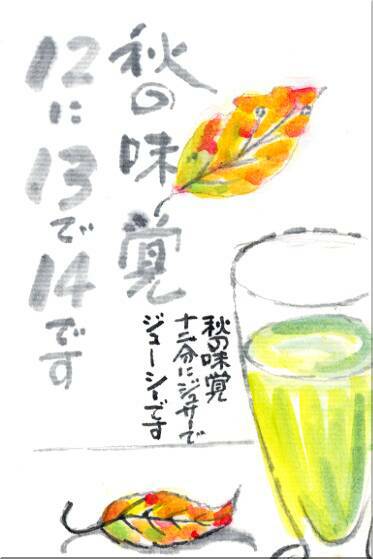 秋の味覚
12に13で14です
秋の味覚
十二分にジューサーで
ジューシーです